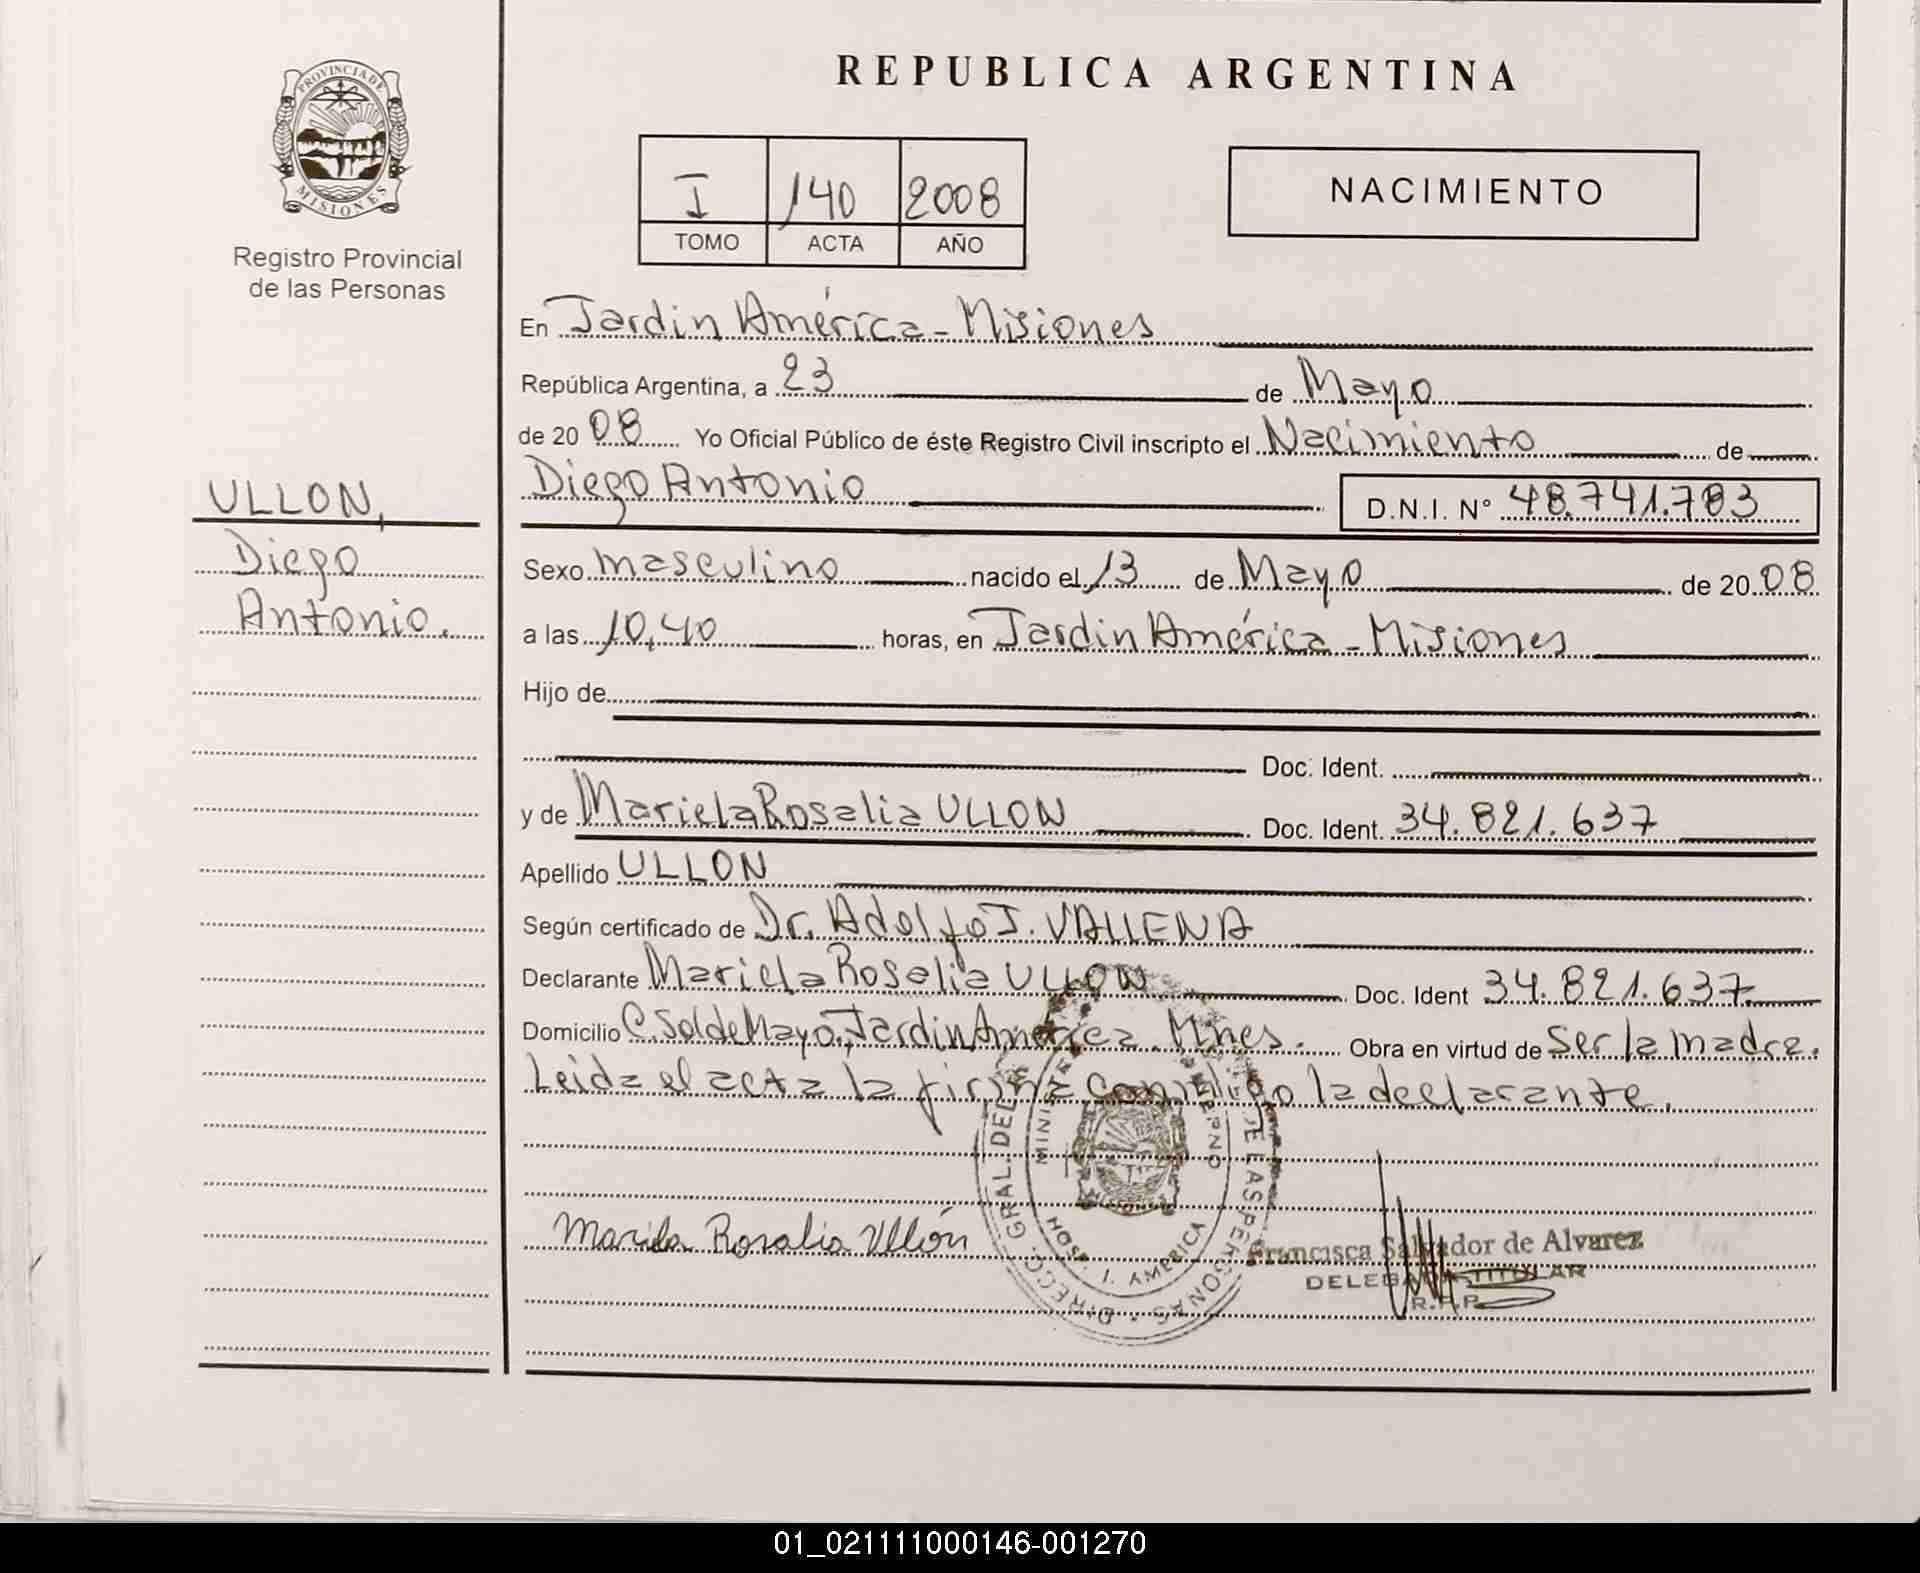 REPUBLICA ARGENTINA
PROVINCIA DE
MISIONES
Registro Provincial
de las Personas
I 140 2008
TOMO ACTA AÑO
NACIMIENTO
En Jardin América - Misiones
República Argentina, a 23 de Mayo
de 2008 Yo Oficial Público de éste Registro Civil inscripto el Nacimiento de
Diego Antonio D.N.I. N° 48.741.783
ULLON,
Diego
Antonio.
Sexo masculino nacido el 13 de Mayo de 2008
a las 10,40 horas, en Jardin América - Misiones
Hijo de
Doc. Ident.
y de Mariela Rosalia ULLON Doc. Ident. 34.821.637
Apellido ULLON
Según certificado de Dr. Adolfo J. VALLENA
Declarante Mariela Rosalia ULLON Doc. Ident 34.821.637
Domicilio C. Sol de Mayo, Jardin América. Mnes. Obra en virtud de ser la madre.
Leida el acta la firma conmigo la declarante.
Mariela Rosalia Ullón
Francisca Salvador de Alvarez
DELEGADA TITULAR
R.P.P.
DIRECC. GRAL. DEL DE LAS PERSONAS
J. AMERICA
01_021111000146-001270